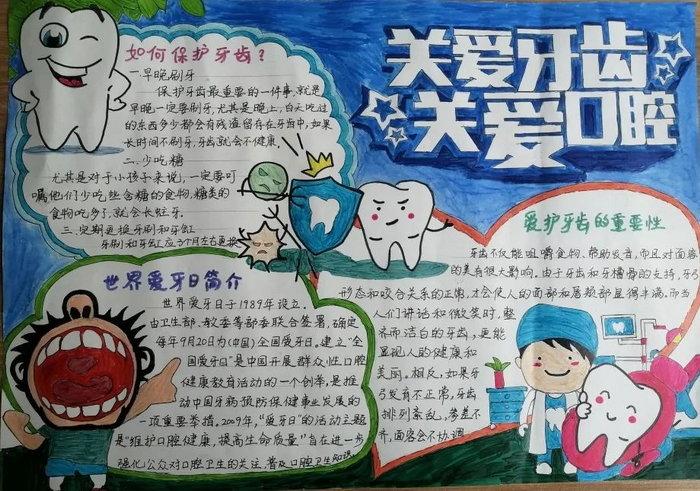 关爱牙齿
关爱口腔
如何保护牙齿？
一早晚刷牙
保护牙齿最重要的一件事，就是
早晚一定要刷牙，尤其是晚上，白天吃过
的东西多少都会有残渣留存在牙齿中，如果
长时间不刷牙，牙齿就会不健康。
二.少吃糖
尤其是对于小孩子来说，一定要叮
嘱他们少吃些含糖的食物，糖类的
食物吃多了，就会长蛀牙。
三.定期更换牙刷和牙缸
牙刷和牙缸应3个月左右更换
世界爱牙日简介
世界爱牙日于1989年设立，
由卫生部、教委等部委联合签署，确定
每年9月20日为(中国)全国爱牙日。建立"全
国爱牙日"是中国开展群众性口腔
健康教育活动的一个创举，是推
动中国牙病预防保健事业发展的
一项重要举措。2009年，"爱牙日"的活动主题
是"维护口腔健康，提高生命质量"旨在进一步
强化公众对口腔卫生的关注，普及口腔卫生知识
爱护牙齿的重要性
牙齿不仅能咀嚼食物、帮助发音，而且对面容
的美有很大影响。由于牙齿和牙槽骨的支持，牙弓
形态和咬合关系的正常，才会使人的面部和唇颊部显得丰满。而当
人们讲话和微笑时，整
齐而洁白的牙齿，更能
显现人的健康和
美丽。相反，如果牙
弓发育不正常，牙齿
排列紊乱，参差不
齐，面容会不协调